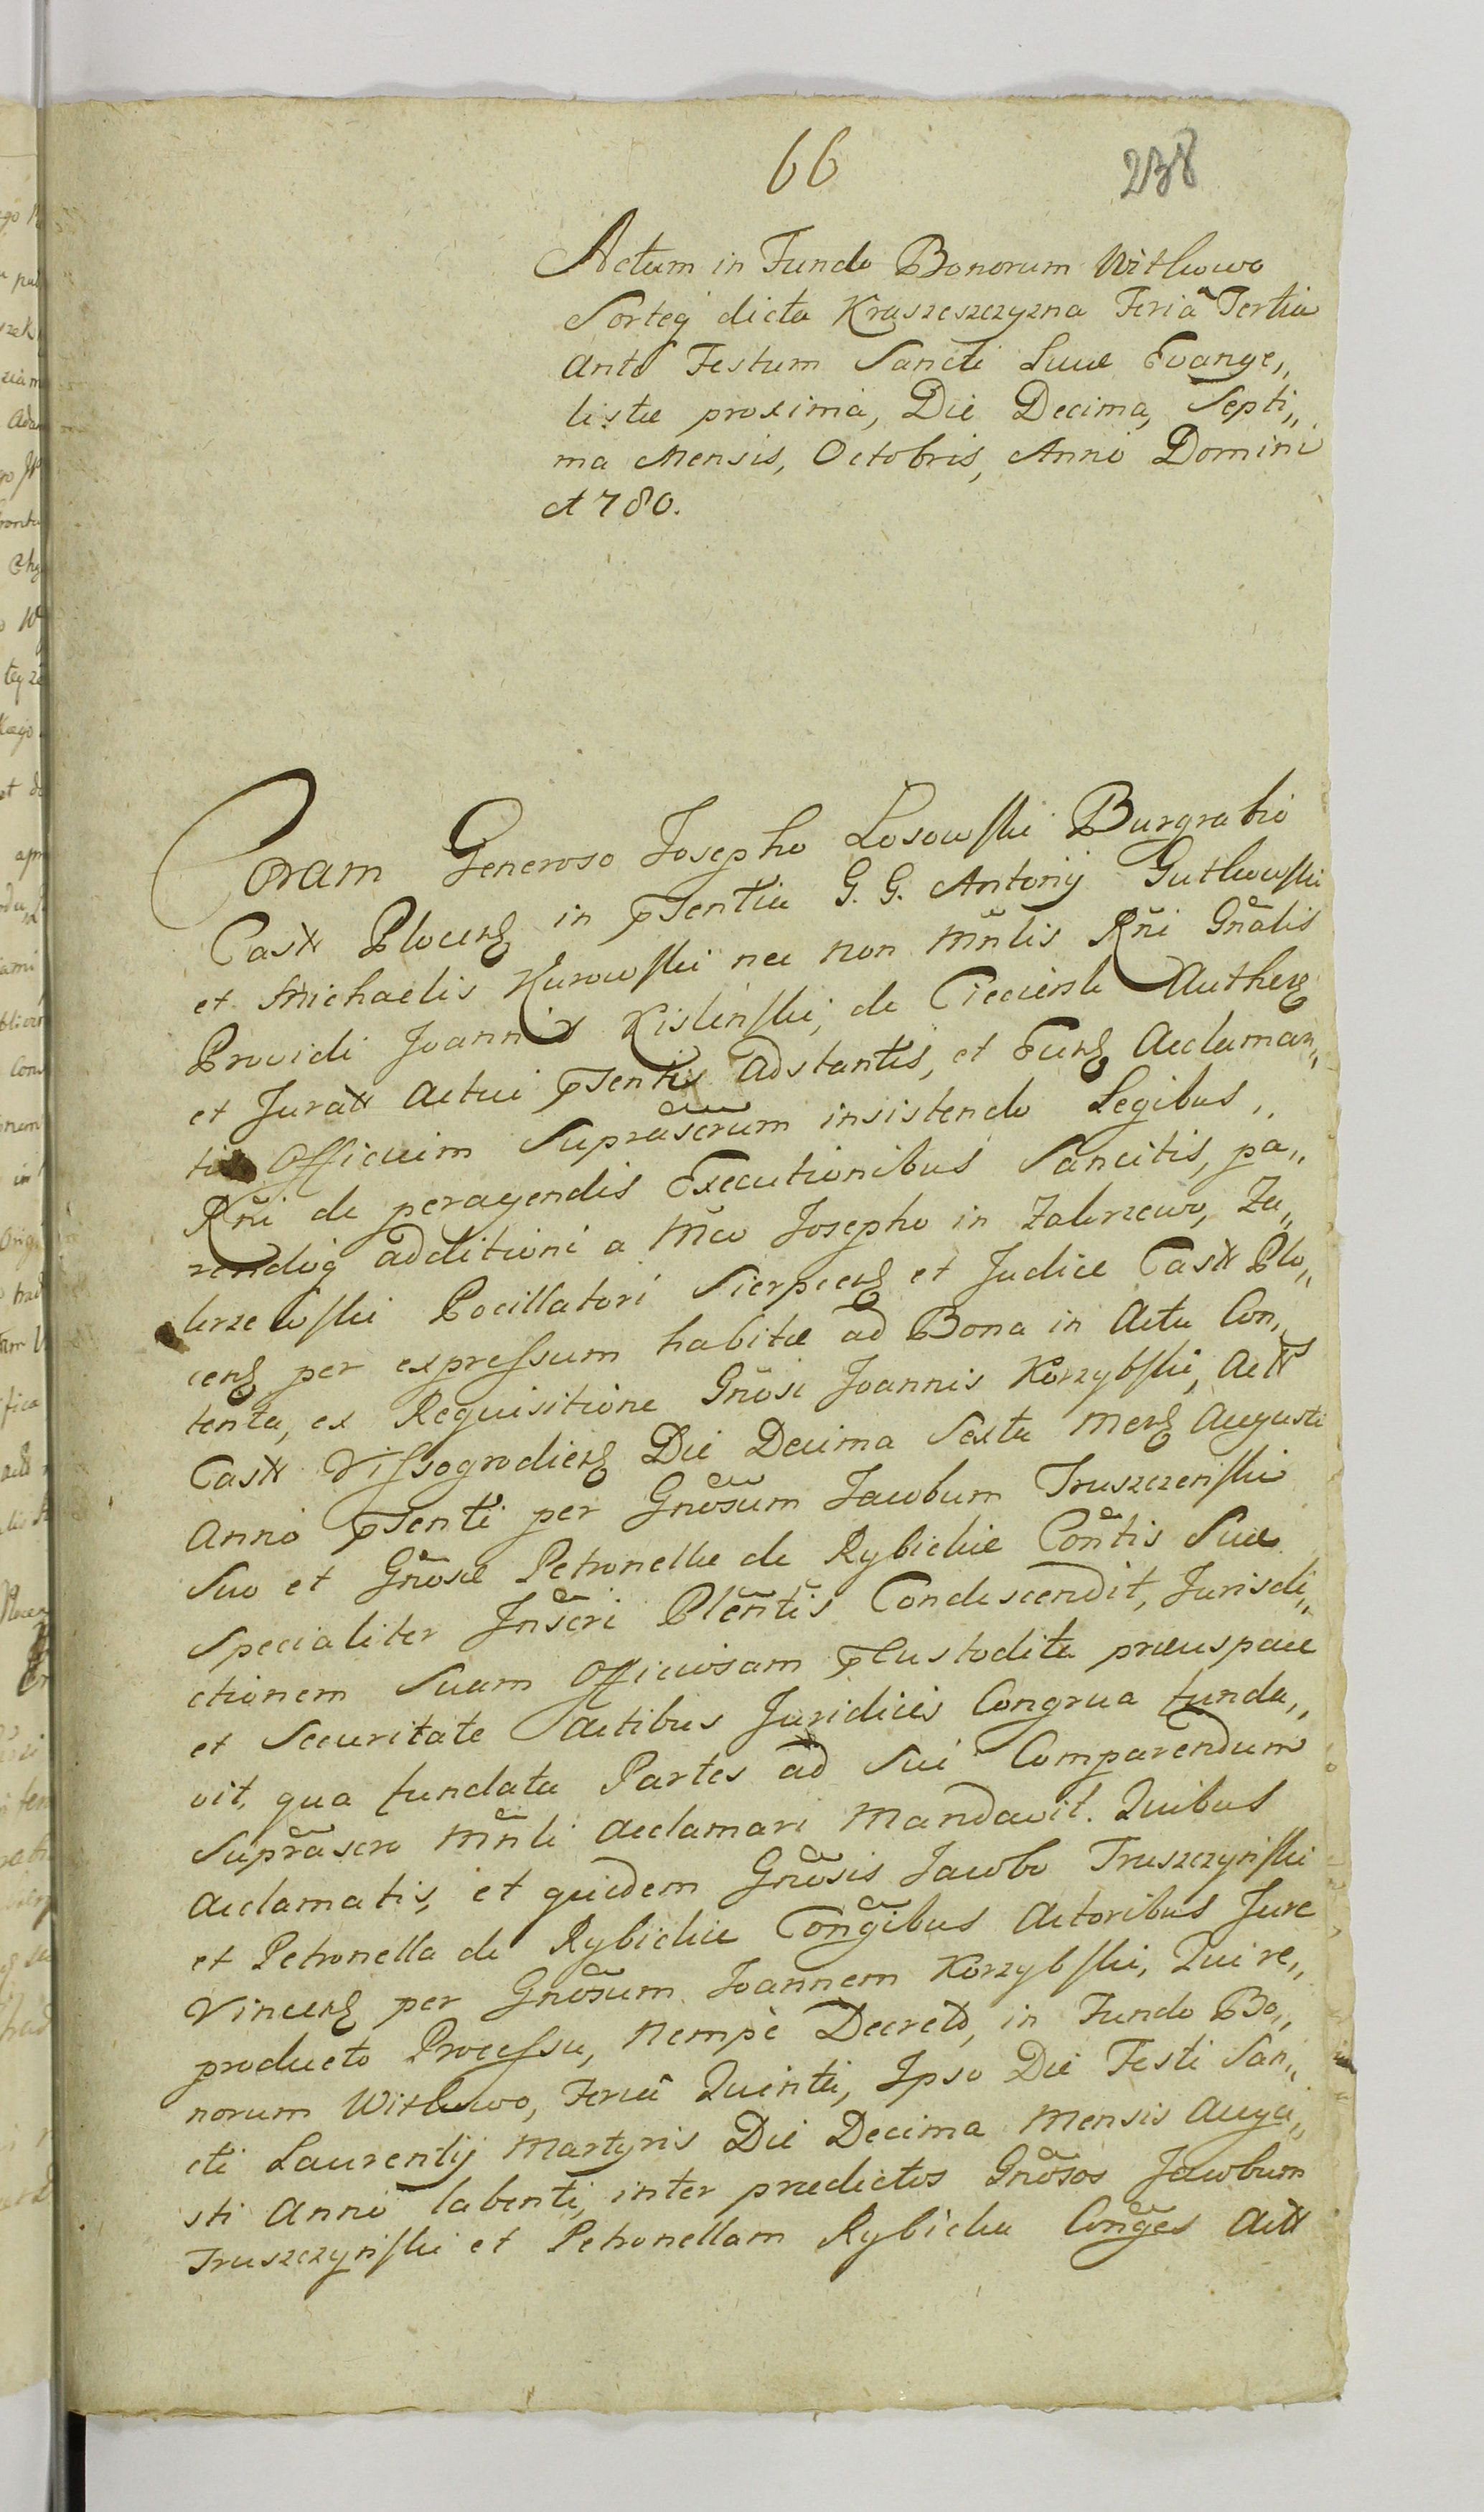 66
238
Actum in Fundo Bonorum Witkowo
Sorteq dicta Kraszeszczyzna Feria Tertia
ante Festum Sancti Lucæ Evange„
listæ proxima, Die Decima, Septi„
ma Mensis, Octobris, Anno Domini
1780.
Coram Generoso Josepho Łosowski Burgrabio
Castr Plocens in pñtia G. G. Antonij Gutkowski
et Michaelis Kurowski nec non Mñlis Rñi Gñalis
Providi Joannis Kislinski, de Ciecierske Authen
et Jurati actui pñtis adstantis, et Acclaman„
tis Officium Suprascrum insistendo Legibus„
Rñi de peragendis Executionibus Sancitis, pa„
rendoq additioni a Mco Josepho in Zakrzewo, Za„
krzewski Pocillatori Sierpcens et Judice Castr Plo„
cens per expressum habitæ ad Bona in Actu Con„
tenta, ex Requisitione Gnosi Joannis Korzybski, Actt
Castr Vissogrodiens Die Decima Sexta Mens Augusti
Anno pñti per Gnosum Jacobum Truszczenski
Suo et Gnosæ Petronellæ de Rybickie Contis Suæ
Specialiter Inscri Plentis Condescendit, Jurisdi„
ctionem Suam Officiosam Custodita
et Securitate actibus Juridicis Congrua funda„
vit, qua fundata Partes ad Sui Comparendum
Suprascro Mñli acclamari Mandavit. Quibus
Acclamatis, et quidem Gnosis Jacobo Truszczynski
et Petronella de Rybickie Congibus Actoribus Jure
Vincens per Gnosum Joannem Korzybski, Qui re„
producto Processu, nempè Decreto, in Fundo Bo„
norum Witkowo, Feria Quinta, Ipso Die Festi San„
cti Laurentij Martyris Die Decima Mensis Augu„
sti Anno labenti, inter prædictos Gnosos Jacobum
Truszczynski et Petronellam Rybicka Conges Actt